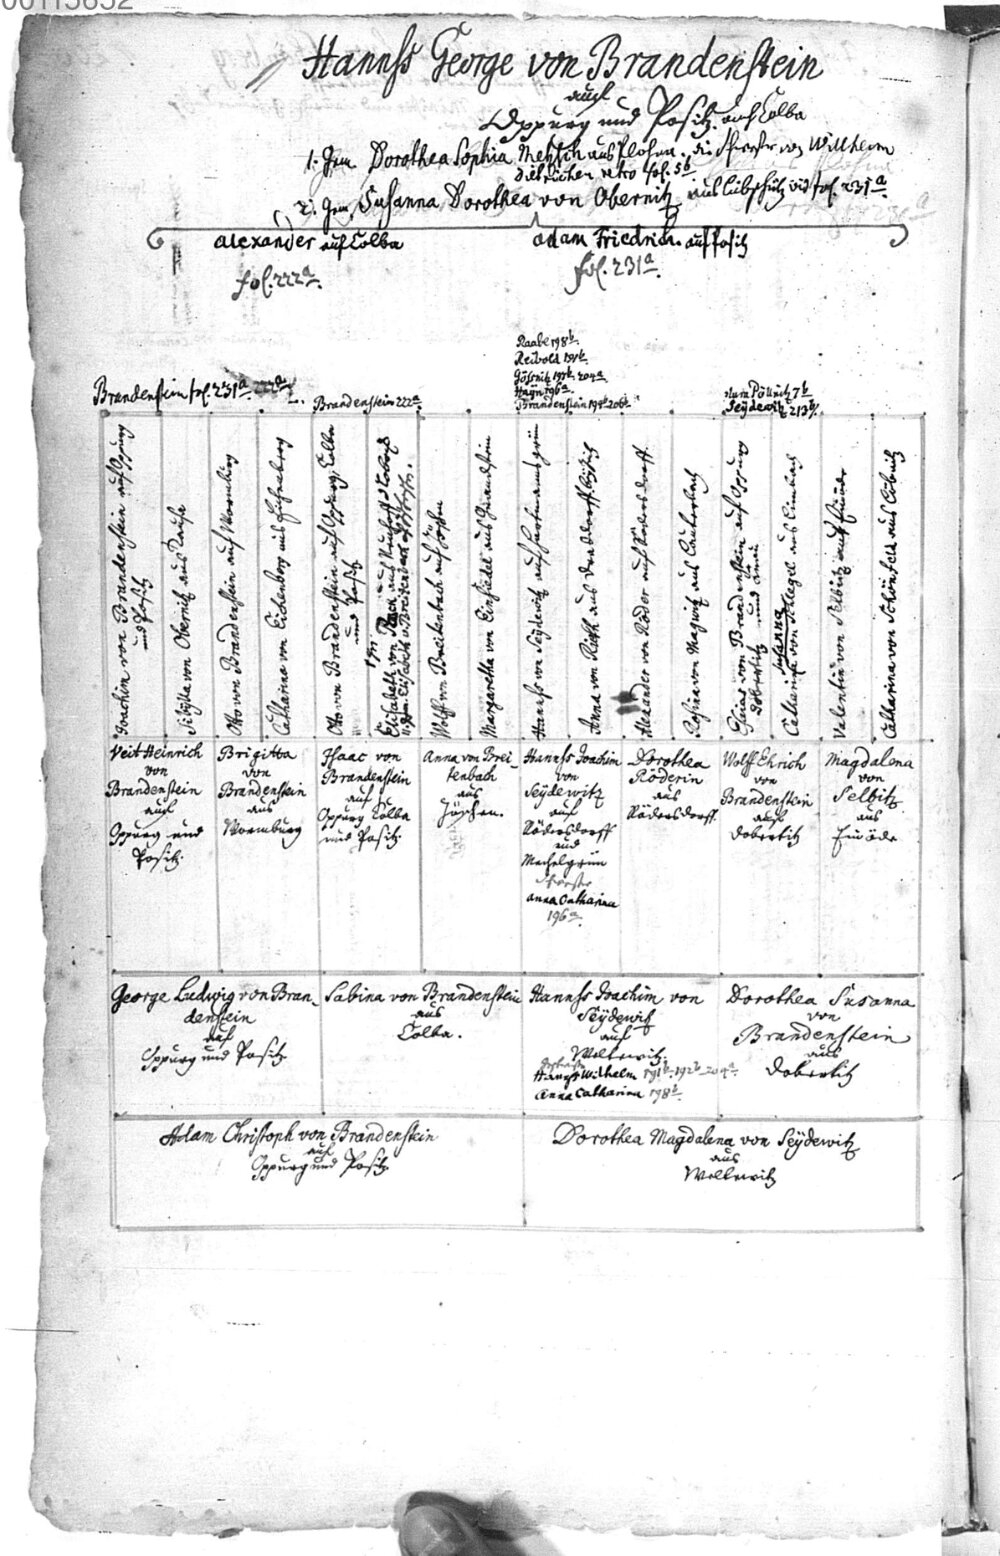 00115652
Hannß George von Brandenstein
auf
Oppurg und Positz auch Colba
1. Gem. Dorothea Sophia Metzsch aus Plohna. die Schwester von Willhelm
Dietrichen retro fol. 5b.
2. Gem. Susanna Dorothea von Obernitz aus Liebschütz vid. fol. 231a.
Alexander auf Colba
fol. 222a.
Adam Friedrich auf Positz
fol. 231a.
Raabe 198b.
Reibold
Gößnitz 204a.
Hayn 196a.
Brandenstein 206b.
Brandenstein fol. 231a. 222a.
Brandenstein 222a.
Pöllnitz 7b
Seydewitz 213b.
Joachim von Brandenstein auf Oppurg
und Positz
Sibylla von Obernitz aus
Otto von Brandenstein auf Wernburg
Catharina von Eichenberg aus
Otto von Brandenstein auf Oppurg Colba
und Positz
Elisabeth von
Wolff von Breitenbach auf
Margaretha von Einsiedel aus Gnandstein
Hannß von Seydewitz auf
Anna von
Alexander von Röder auf Rödersdorff
Rosina von Magwitz aus
Esaias von Brandenstein auf Oppurg
Dobertitz und
Susanna
Catharina von Schlegel aus
Valentin von Selbitz auf Einöde
Catharina von Schönfeld aus Löbnitz
Veit Heinrich
von
Brandenstein
auf
Oppurg und
Positz.
Brigitta
von
Brandenstein
aus
Wernburg
Isaac von
Brandenstein
auf
Oppurg Colba
und Positz
Anna von Brei-
tenbach
aus
Hannß Joachim
von
Seydewitz
auf
Rödersdorff
und
Mechelgrün
Schwester
Anna Catharina
196a.
Dorothea
Röderin
aus
Rödersdorff
Wolff Ehrich
von
Brandenstein
auf
Dobertitz
Magdalena
von
Selbitz
aus
Einöde
George Ludwig von Bran-
denstein
auf
Oppurg und Positz
Sabina von Brandenstein
aus
Colba.
Hannß Joachim von
Seydewitz
auf
Wellerwitz.
Hannß Wilhelm 191b. 192b. 204a.
Anna Catharina 198b.
Dorothea Susanna
von
Brandenstein
aus
Dobertitz
Adam Christoph von Brandenstein
auf
Oppurg und Positz
Dorothea Magdalena von Seydewitz
aus
Wellerwitz